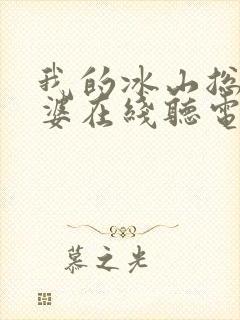 我的冰山总
婆在线听电
慕之光